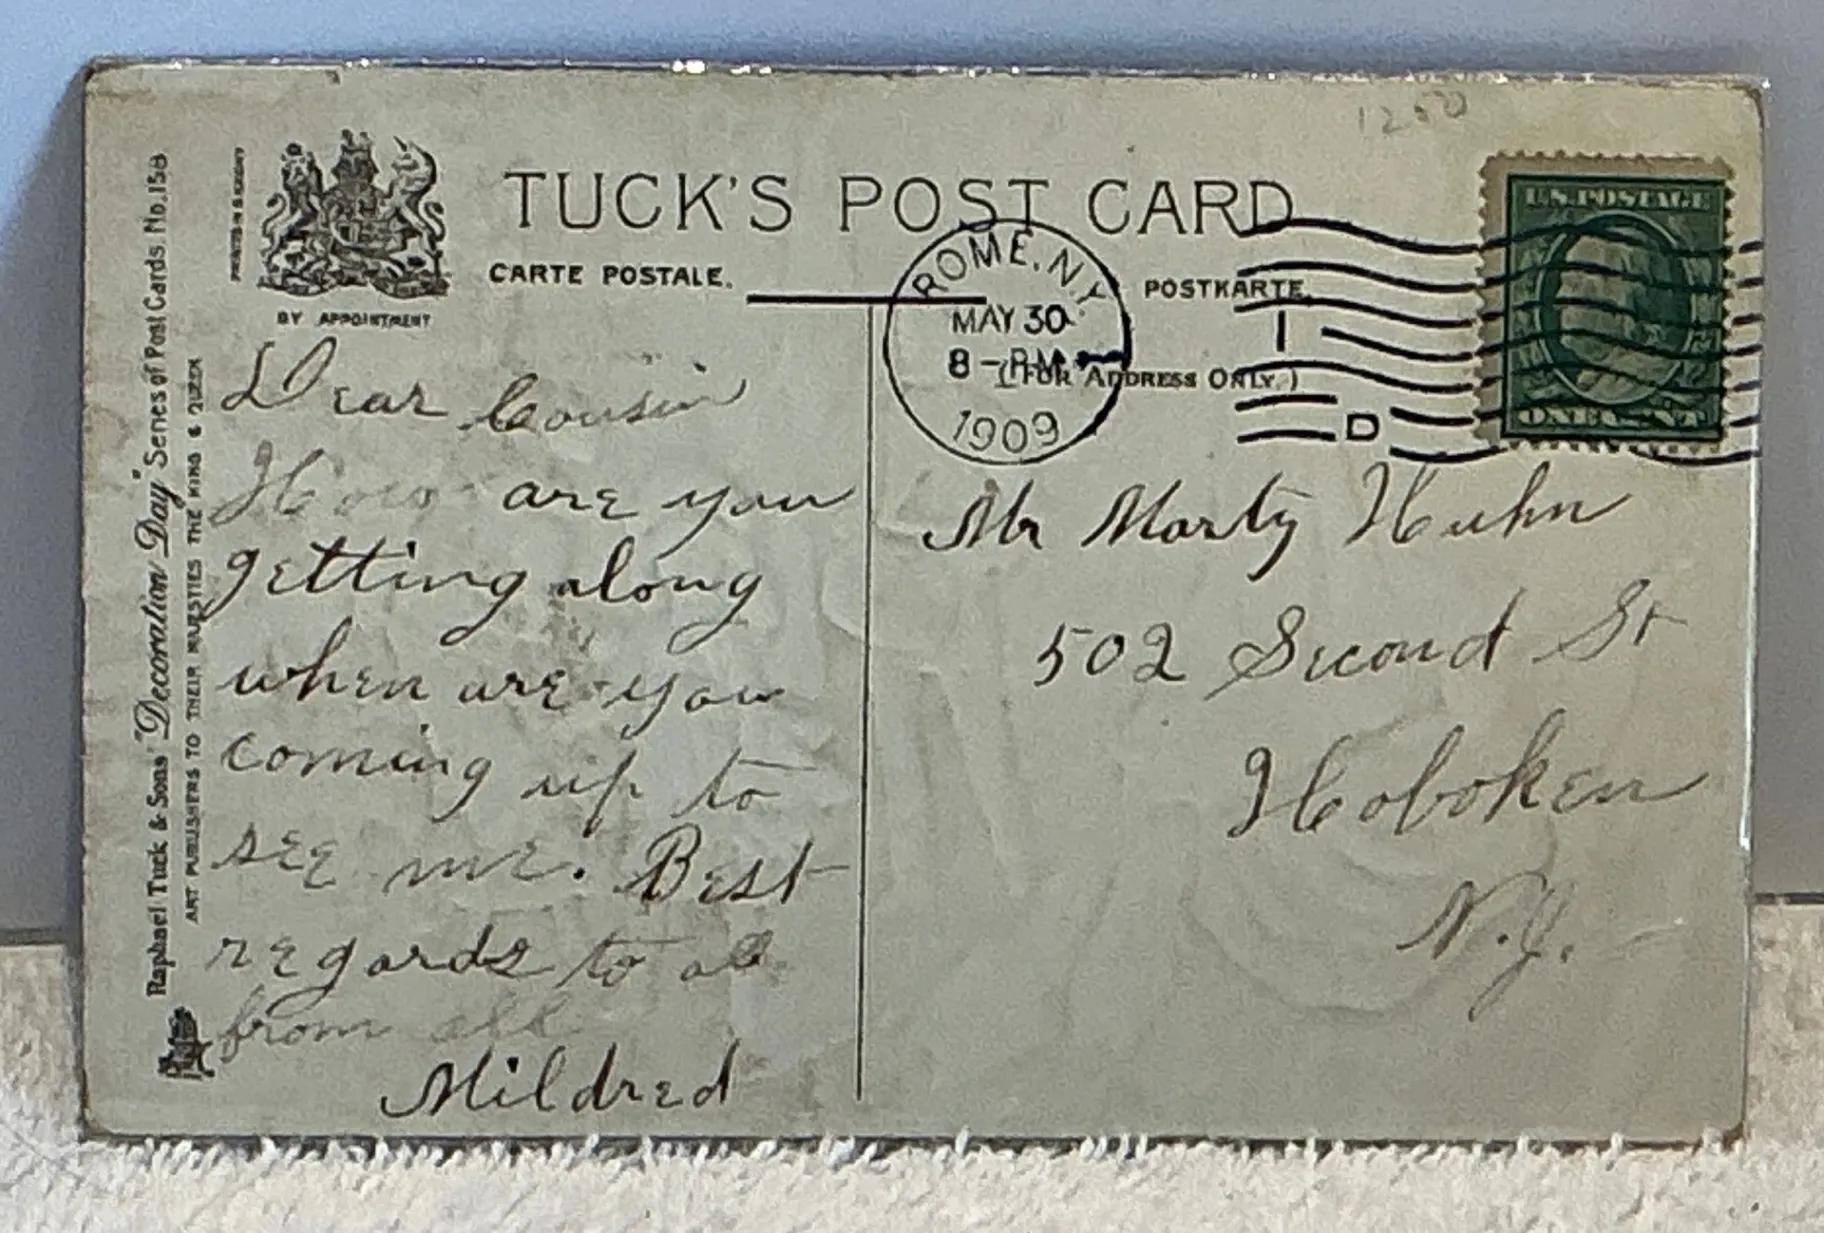 1250
TUCK'S POST CARD
CARTE POSTALE.
POSTKARTE.
(FOR ADDRESS ONLY.)
BY APPOINTMENT
PRINTED IN SAXONY
Raphael Tuck & Sons' "Decoration Day" Series of Post Cards. No. 158
ART PUBLISHERS TO THEIR MAJESTIES THE KING & QUEEN
ROME, N.Y.
MAY 30
8 - PM
1909
I
D
U.S. POSTAGE
ONE CENT
Dear Cousin
How are you
getting along
when are you
coming up to
see me. Best
regards to all
from all
Mildred
Mr Marty Huhn
502 Second St
Hoboken
N.J.